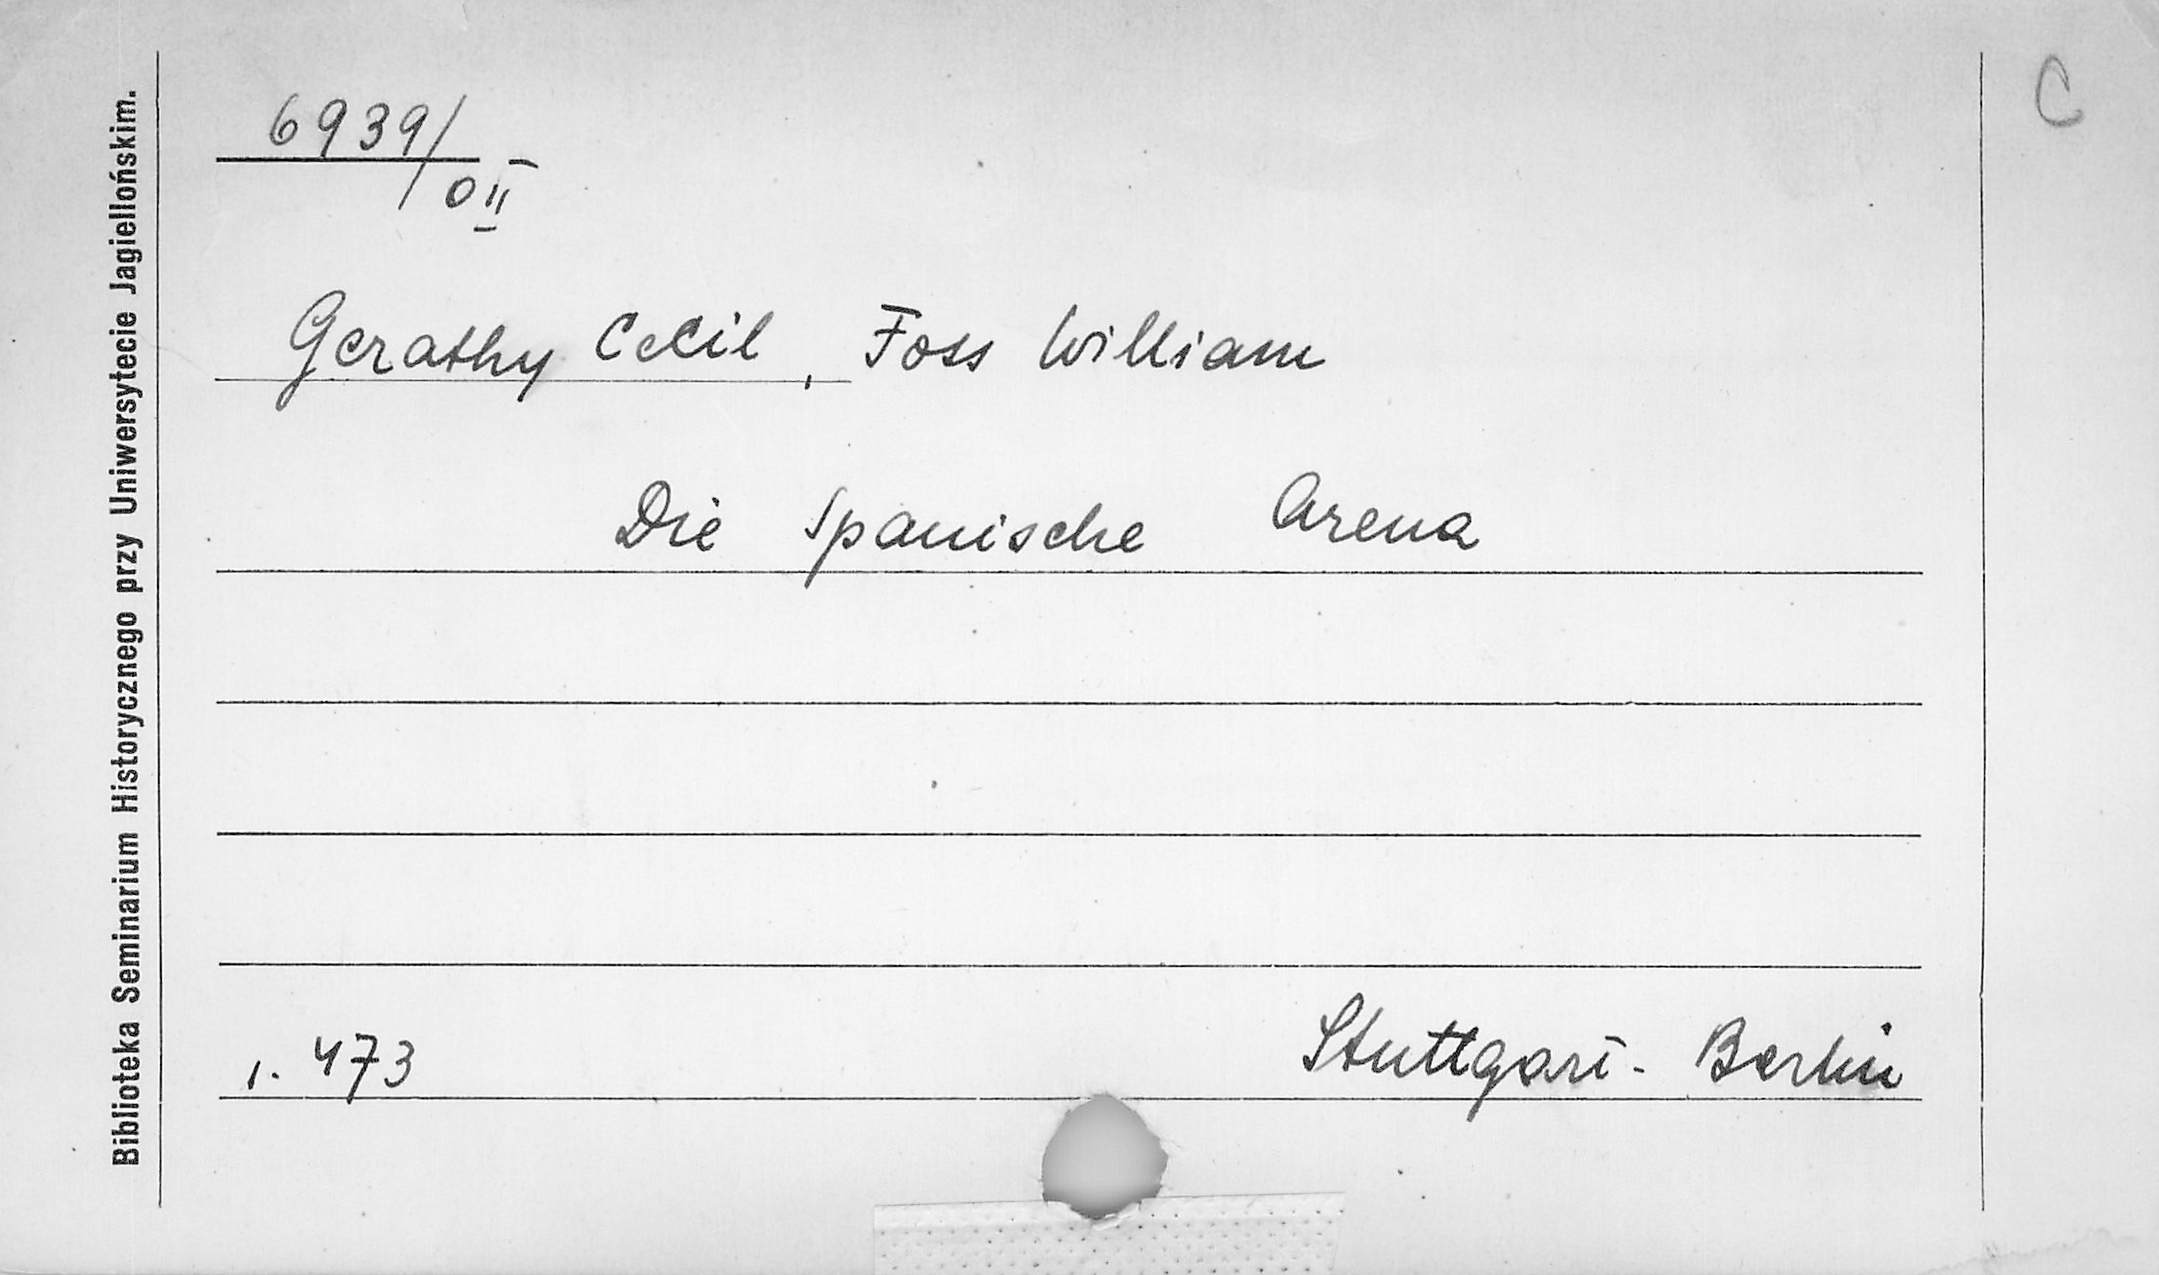 6939/
0 II
C
Gerathy Cecil, Foss William
Die Spanische Arena
s. 473
Stuttgart - Berlin
Biblioteka Seminarium Historycznego przy Uniwersytecie Jagiellońskim.